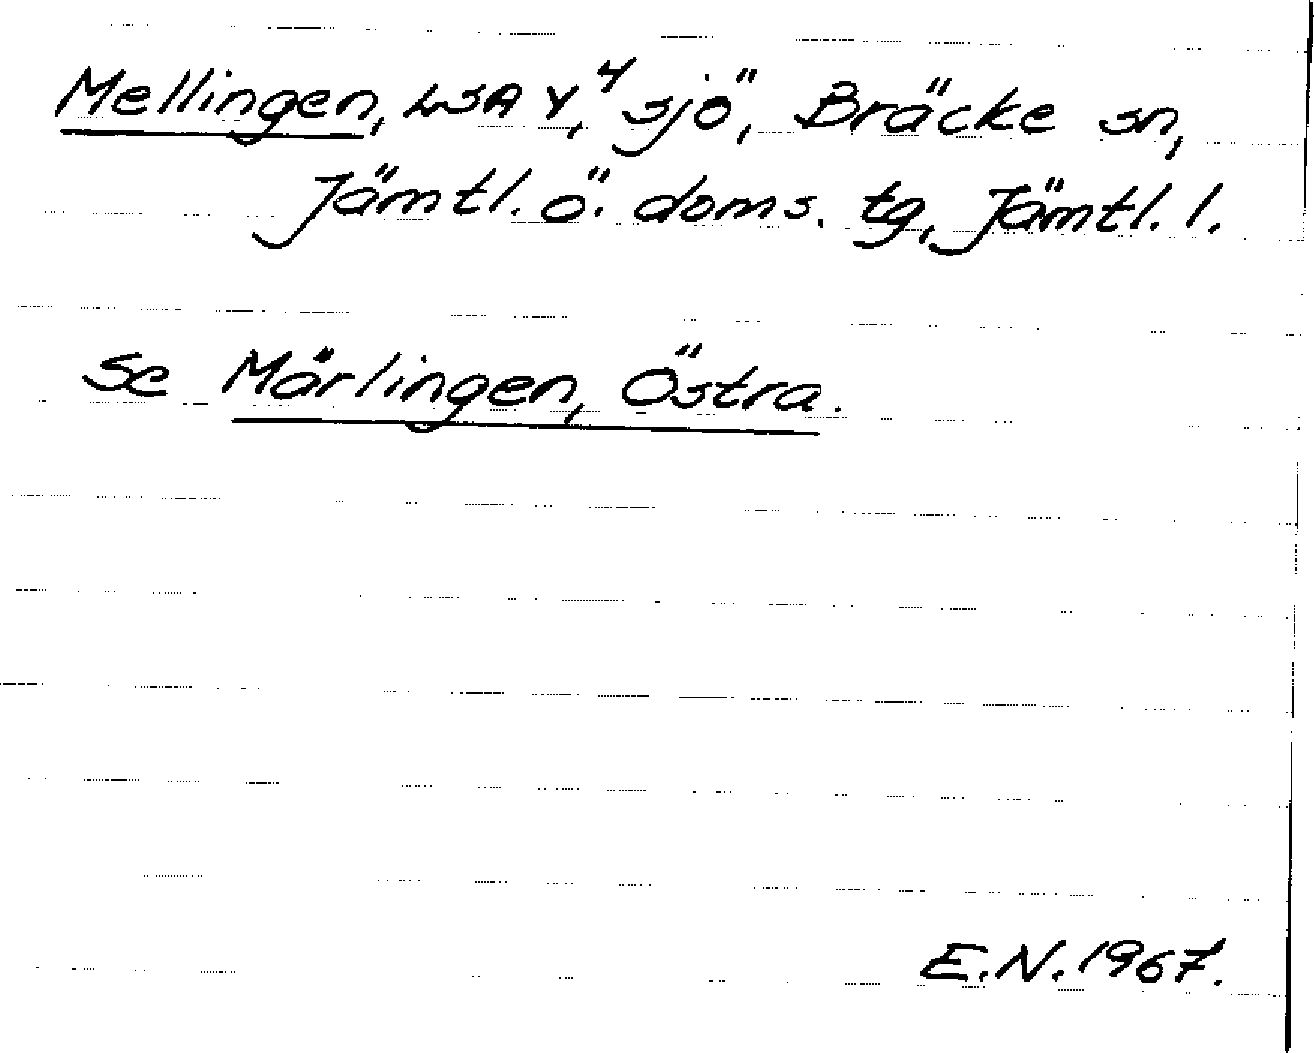 Mellingen, LSA Y,⁴ sjö, Bräcke sn,
Jämtl. ö. doms. tg, Jämtl. l.
se Märlingen, Östra.
E.N. 1967.